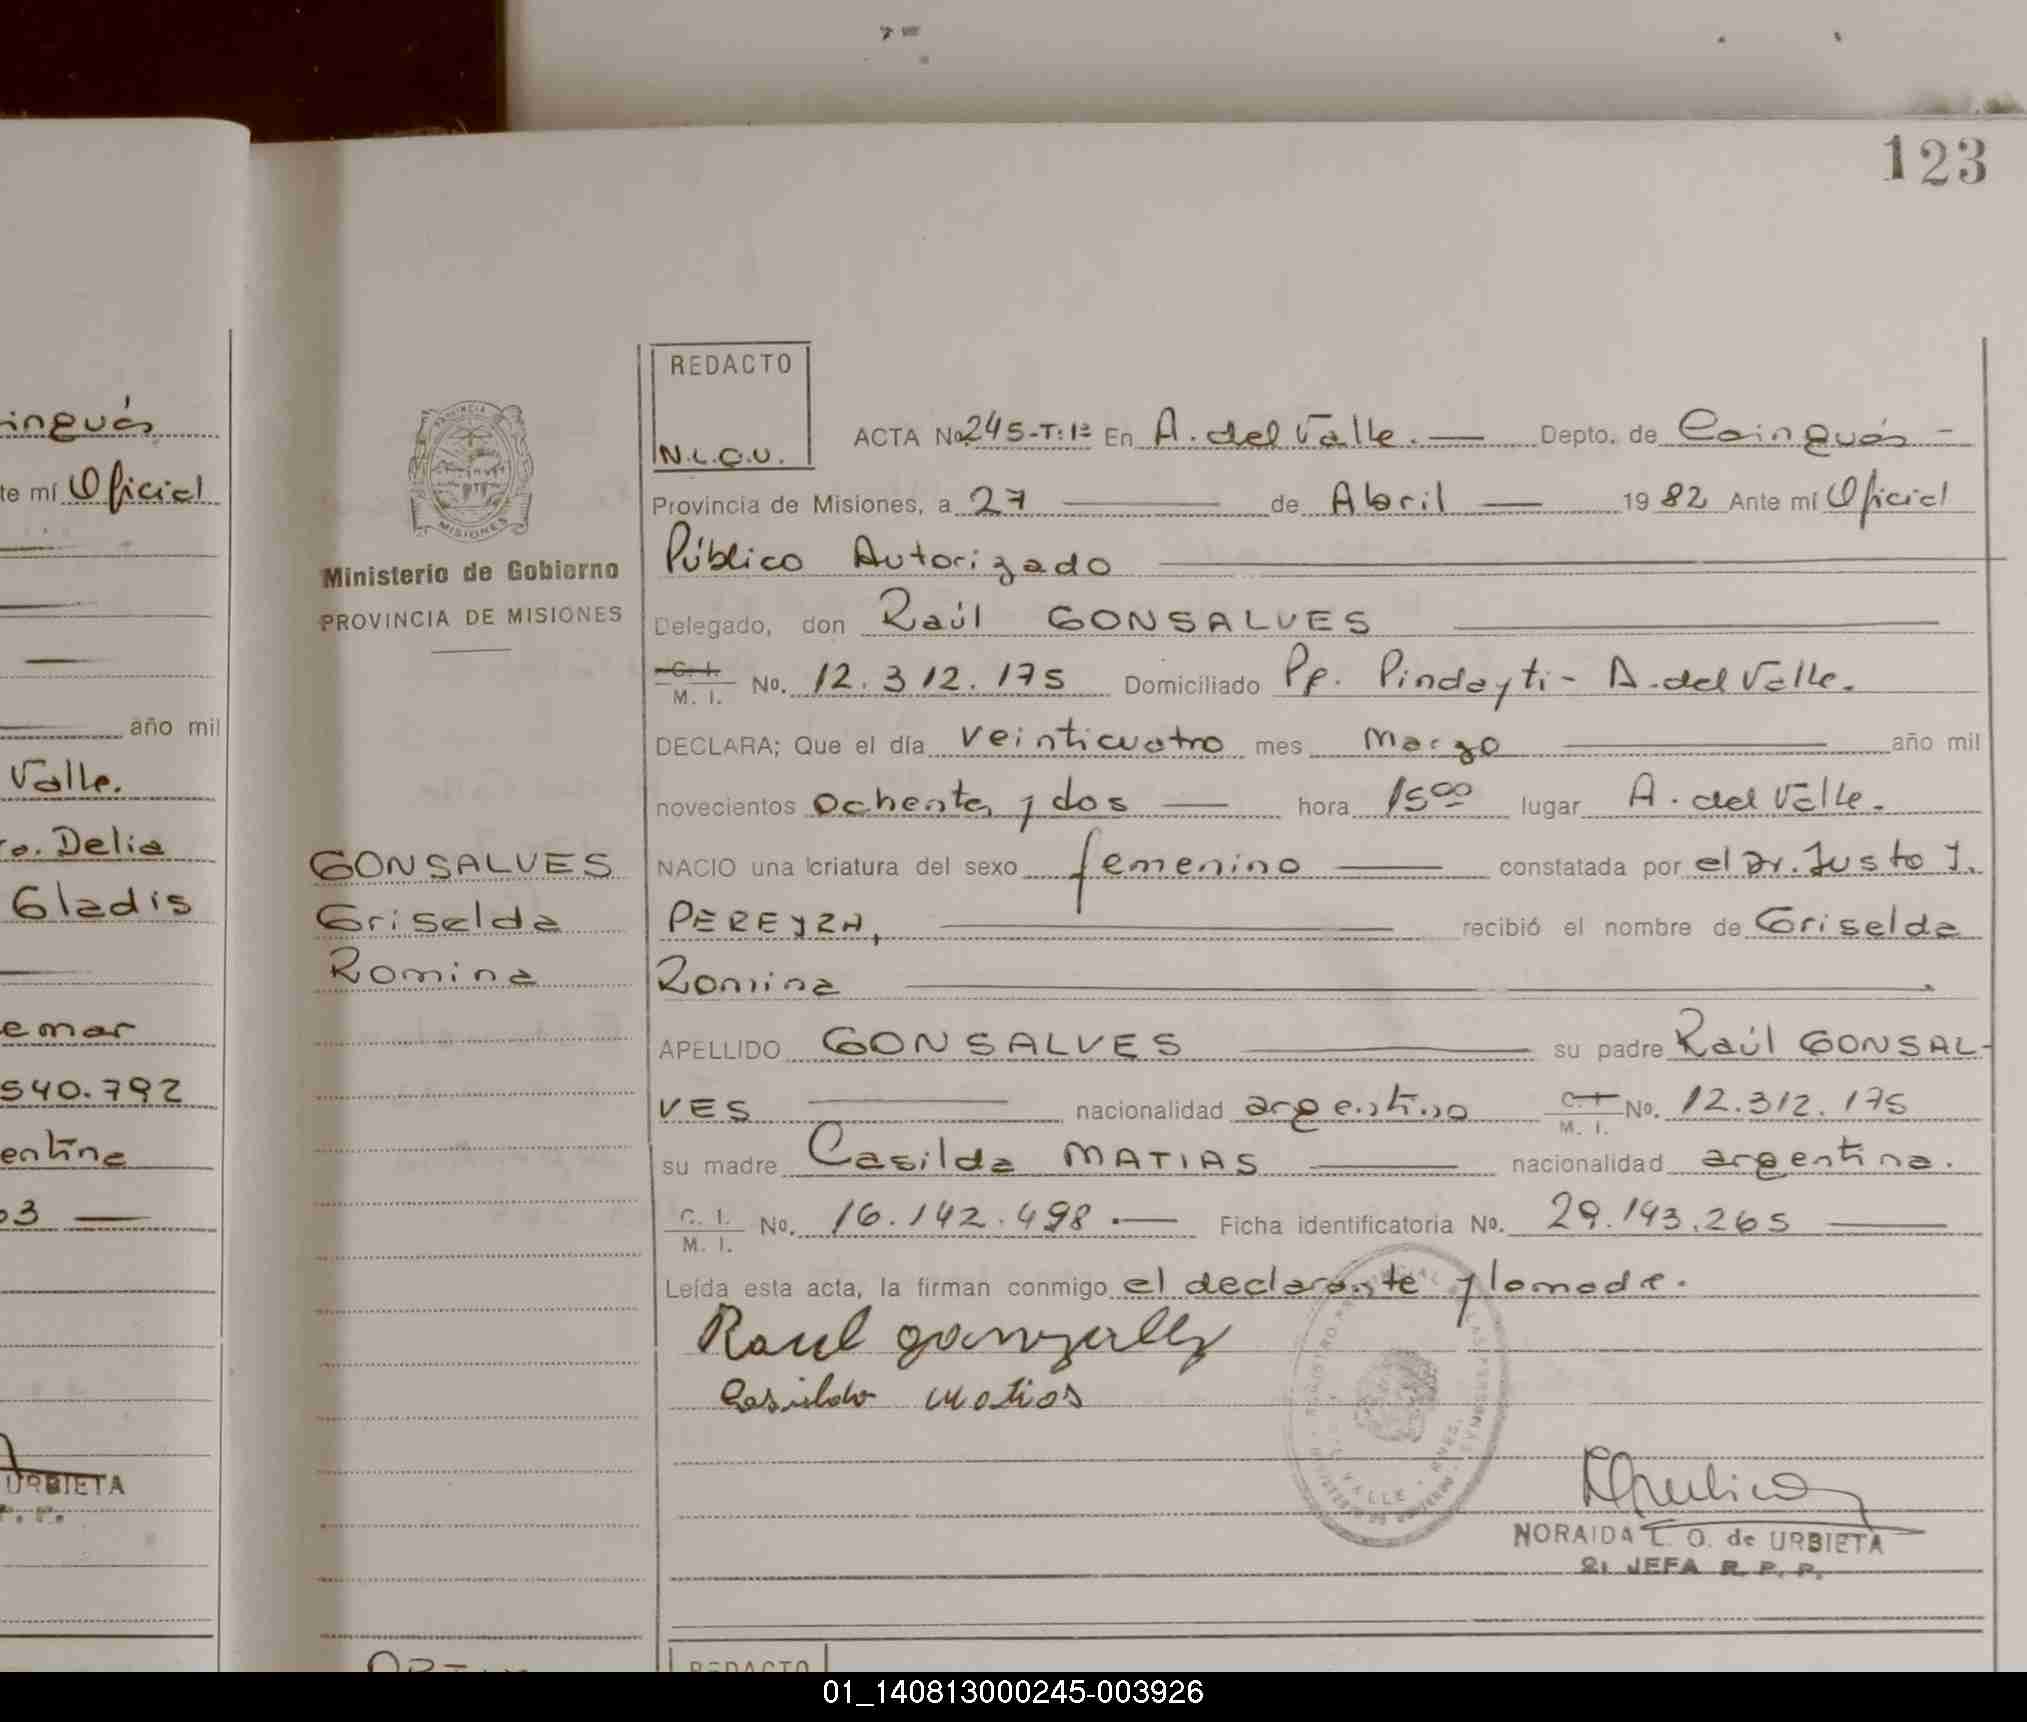 123
inguás
te mí Oficial
año mil
Valle.
ro. Delia
Gladis
emar
540.792
entina
03
URBIETA
PROVINCIA
MISIONES
Ministerio de Gobierno
PROVINCIA DE MISIONES
GONSALVES
Griselda
Romina
REDACTO
N.L.O.U.
ACTA No 245-T:1º En A. del Valle. Depto. de Cainguás -
Provincia de Misiones, a 27 de Abril 1982 Ante mí Oficial
Público Autorizado
Delegado, don Raúl GONSALVES
C. I. M. I. No. 12.312.175 Domiciliado Pp. Pindayti - A. del Valle.
DECLARA; Que el día veinticuatro mes Marzo año mil
novecientos ochenta y dos hora 15 00 lugar A. del Valle.
NACIO una criatura del sexo femenino constatada por el Dr. Justo J.
PEREYRA, recibió el nombre de Griselda
Romina
APELLIDO GONSALVES su padre Raúl GONSAL-
VES nacionalidad argentino C. I. M. I. No. 12.312.175
su madre Casilda MATIAS nacionalidad argentina.
C. I. M. I. No. 16.142.498.- Ficha identificatoria No. 29.143.265
Leída esta acta, la firman conmigo el declarante y la madre.
Raul
Casilda Matias
VALLE
NORAIDA L. O. de URBIETA
JEFA R. P. P.
REDACTO
01_140813000245-003926